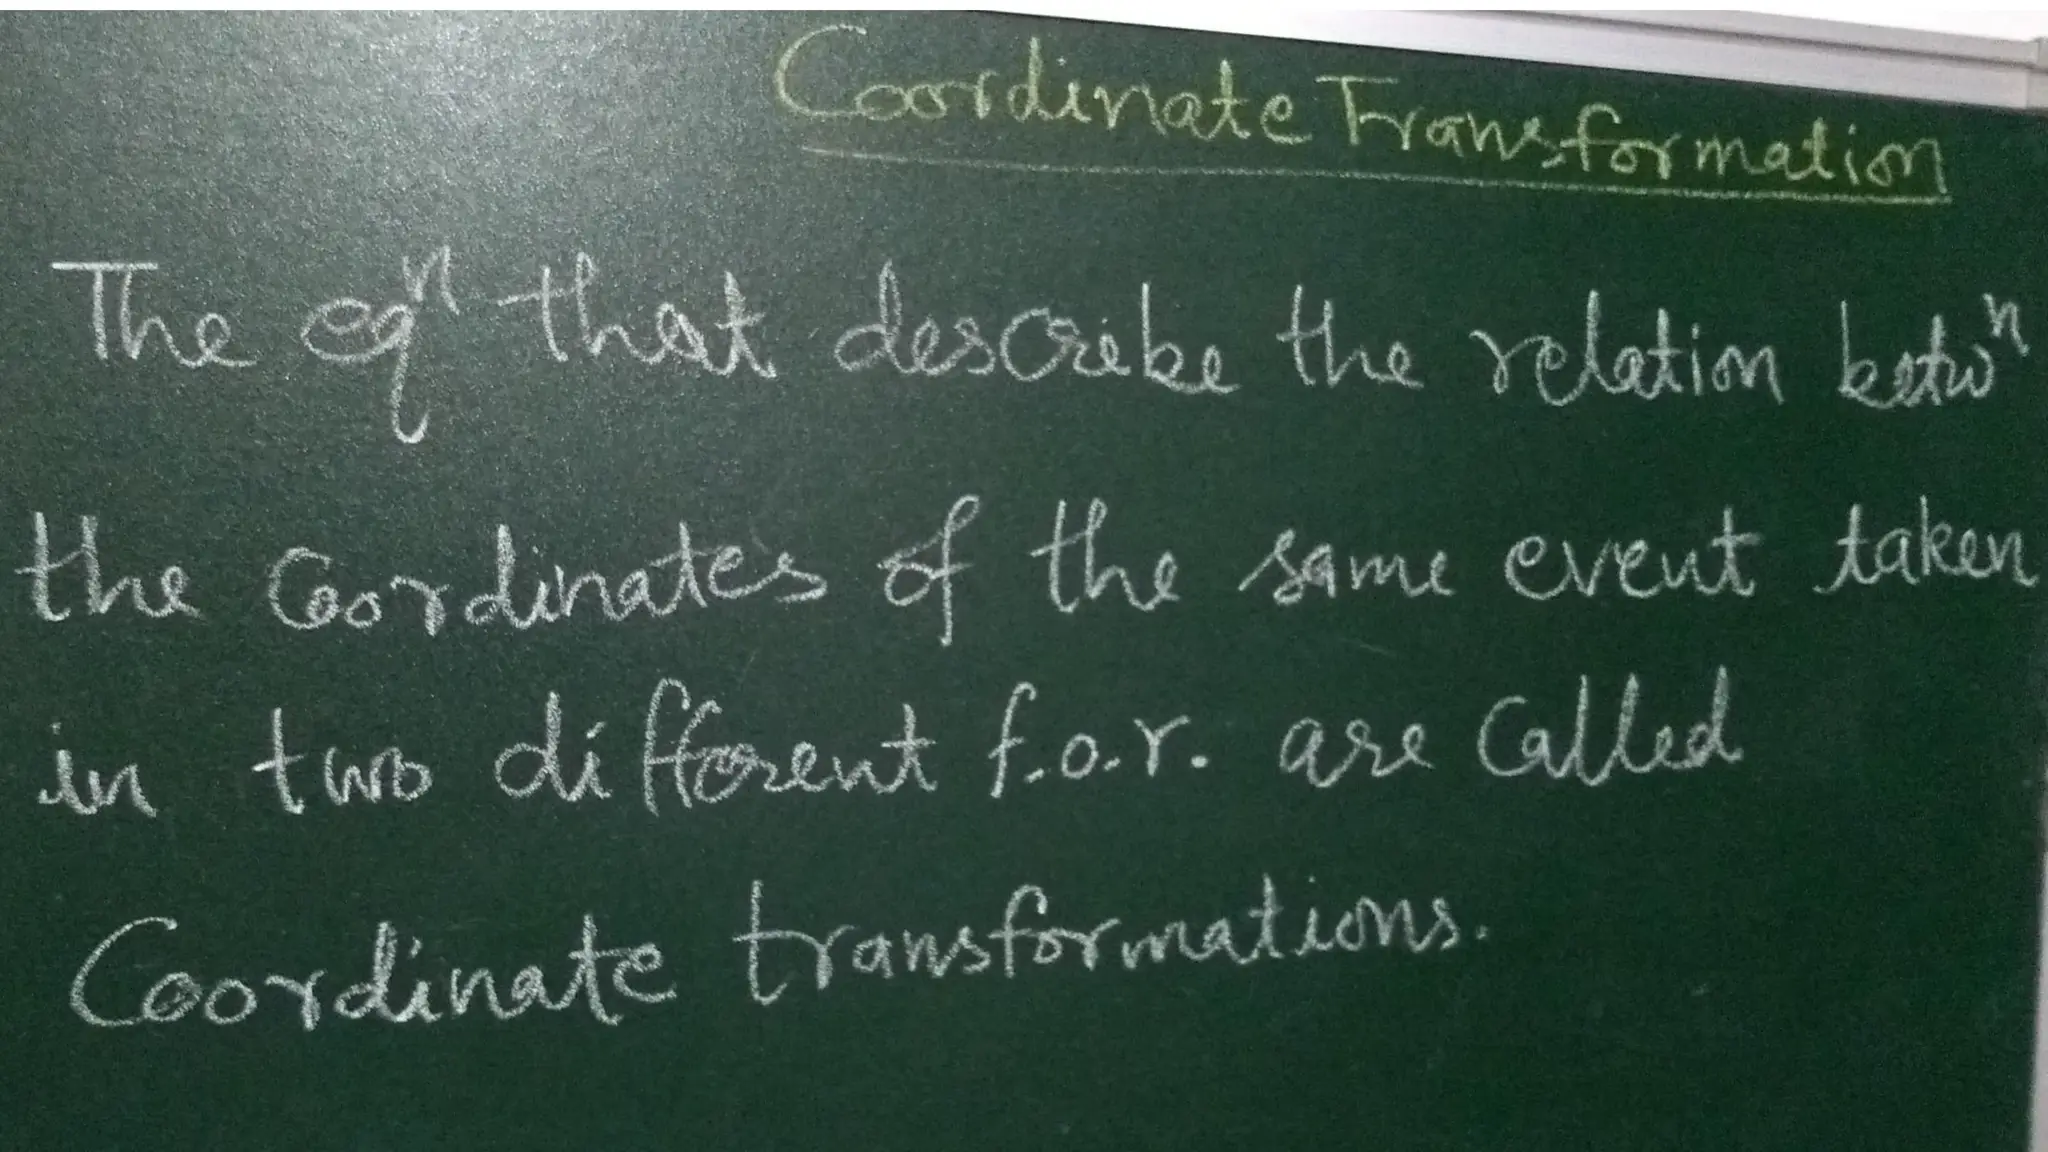 Coordinate Transformation
The eqⁿ that describe the relation betwⁿ
the coordinates of the same event taken
in two different f.o.r. are called
Coordinate transformations.